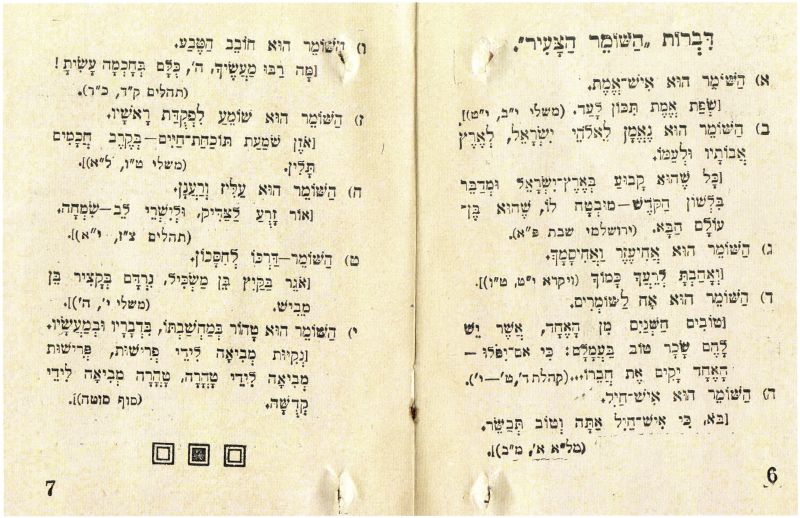 דִּבְרוֹת „הַשּׁוֹמֵר הַצָּעִיר”.
א) הַשּׁוֹמֵר הוּא אִישׁ־אֱמֶת.
[שְׂפַת אֱמֶת תִּכּוֹן לָעַד. (משלי י״ב, י״ט)].
ב) הַשּׁוֹמֵר הוּא נֶאֱמָן לֵאלֹהֵי יִשְׂרָאֵל, לְאֶרֶץ
אֲבוֹתָיו וּלְעַמּוֹ.
[כָּל שֶׁהוּא קָבוּעַ בְּאֶרֶץ־יִשְׂרָאֵל וּמְדַבֵּר
בִּלְשׁוֹן הַקֹּדֶשׁ—מוּבְטָח לוֹ, שֶׁהוּא בֶּן־
עוֹלָם הַבָּא. (ירושלמי שבת פ״א).
ג) הַשּׁוֹמֵר הוּא אֲחִיעֶזֶר וַאֲחִיסָמָךְ.
[וְאָהַבְתָּ לְרֵעֲךָ כָּמוֹךָ (ויקרא י״ט, ט״ו)].
ד) הַשּׁוֹמֵר הוּא אָח לַשּׁוֹמְרִים.
[טוֹבִים הַשְּׁנַיִם מִן הָאֶחָד, אֲשֶׁר יֵשׁ
לָהֶם שָׂכָר טוֹב בַּעֲמָלָם: כִּי אִם־יִפֹּלוּ—
הָאֶחָד יָקִים אֶת חֲבֵרוֹ...(קהלת ד׳, ט׳—י׳).
ה) הַשּׁוֹמֵר הוּא אִישׁ־חַיִל.
[בֹּא, כִּי אִישׁ־חַיִל אַתָּה וְטוֹב תְּבַשֵּׂר.
(מל״א א׳, מ״ב)].
6
ו) הַשּׁוֹמֵר הוּא חוֹבֵב הַטֶּבַע.
[מָה רַבּוּ מַעֲשֶׂיךָ, ה׳, כֻּלָּם בְּחָכְמָה עָשִׂיתָ!
(תהלים ק״ד, כ״ד).
ז) הַשּׁוֹמֵר הוּא שׁוֹמֵעַ לִפְקֻדַּת רָאשָׁיו.
[אֹזֶן שֹׁמַעַת תּוֹכַחַת־חַיִּים—בְּקֶרֶב חֲכָמִים
תָּלִין. (משלי ט״ו, ל״א)].
ח) הַשּׁוֹמֵר הוּא עַלִּיז וְרַעֲנָן.
[אוֹר זָרֻעַ לַצַּדִּיק, וּלְיִשְׁרֵי לֵב—שִׂמְחָה.
(תהלים צ״ז, י״א)].
ט) הַשּׁוֹמֵר—דַּרְכּוֹ לְחִסָּכוֹן.
[אֹגֵר בַּקַּיִץ בֵּן מַשְׂכִּיל, נִרְדָּם בַּקָּצִיר בֵּן
מֵבִישׁ. (משלי י׳, ה׳)].
י) הַשּׁוֹמֵר הוּא טָהוֹר בְּמַחְשַׁבְתּוֹ, בִּדְבָרָיו וּבְמַעֲשָׂיו.
[נְקִיּוּת מְבִיאָה לִידֵי פְּרִישׁוּת, פְּרִישׁוּת
מְבִיאָה לִידֵי טָהֳרָה, טָהֳרָה מְבִיאָה לִידֵי
קְדֻשָּׁה. (סוף סוטה)].
7